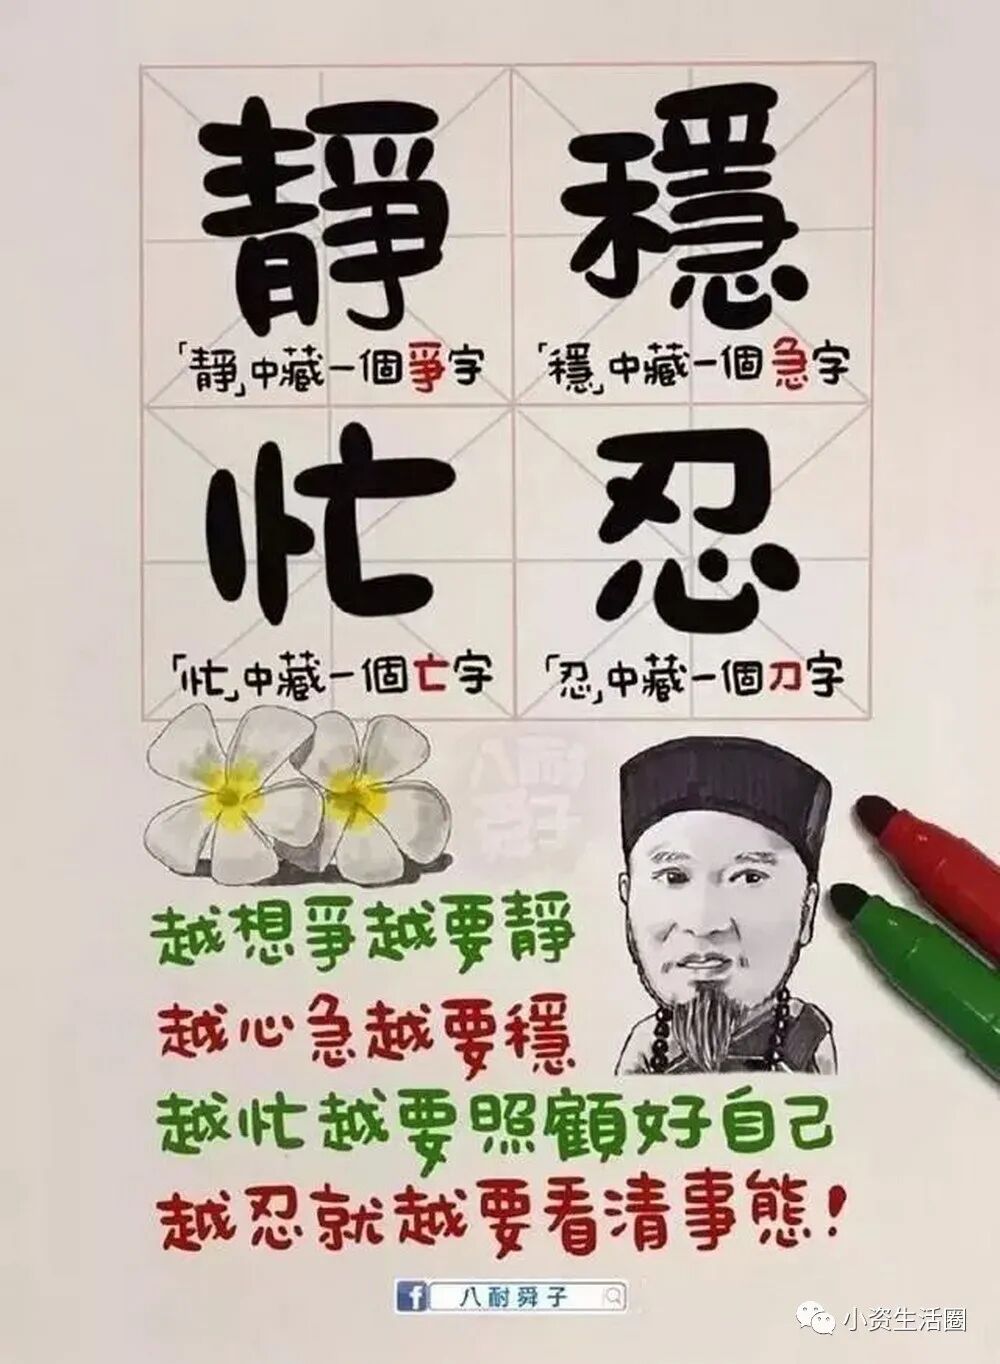 靜
穩
「靜」中藏一個爭字
「穩」中藏一個急字
忙
忍
「忙」中藏一個亡字
「忍」中藏一個刀字
八耐舜子
越想爭越要靜
越心急越要穩
越忙越要照顧好自己
越忍就越要看清事態!
f 八耐舜子
小资生活圈